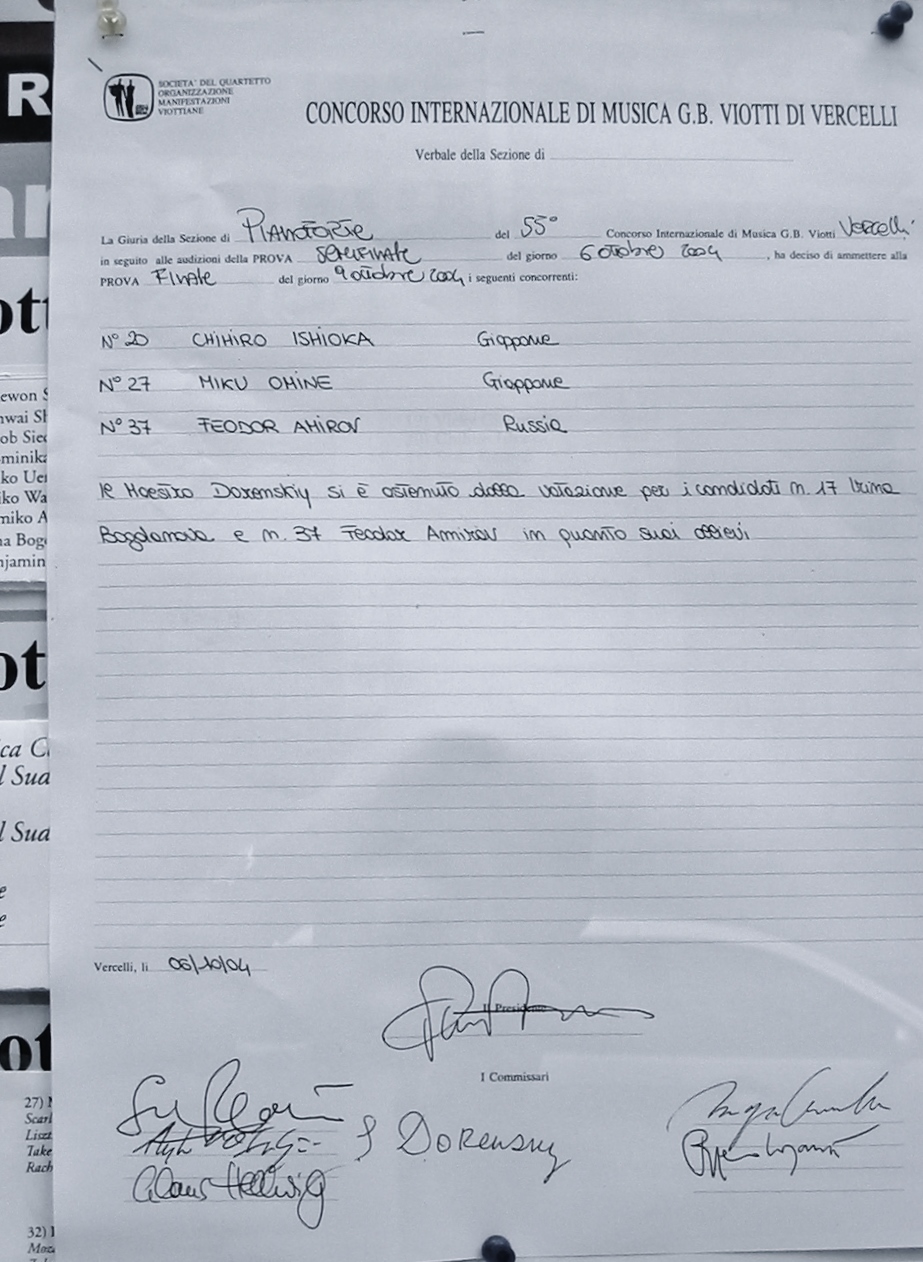 R
SOCIETA' DEL QUARTETTO
ORGANIZZAZIONE
MANIFESTAZIONI
VIOTTIANE
CONCORSO INTERNAZIONALE DI MUSICA G.B. VIOTTI DI VERCELLI
Verbale della Sezione di
La Giuria della Sezione di PIANOFORTE del 55° Concorso Internazionale di Musica G.B. Viotti Vercelli
in seguito alle audizioni della PROVA SEMIFINALE del giorno 6 ottobre 2004, ha deciso di ammettere alla
PROVA FINALE del giorno 9 ottobre 2004 i seguenti concorrenti:
N° 20 CHIHIRO ISHIOKA Giappone
N° 27 MIKU OMINE Giappone
N° 37 FEODOR AMIROV Russia
Il Maestro Dorenskiy si è astenuto dalla votazione per i candidati n. 17 Irina
Bogdanova e n. 37 Feodor Amirov in quanto suoi allievi
Vercelli, li 06/10/04
Il Presidente
I Commissari
S Dorensky
Claus Hellwig
ott
ewon S
nwai Sh
ob Sied
minika
ko Uer
iko Wa
miko A
na Bog
njamin
ot
ica C
l Sud
l Sud
e
e
ot
27)
Scarl
Liszt
Take
Rach
32)
Moz